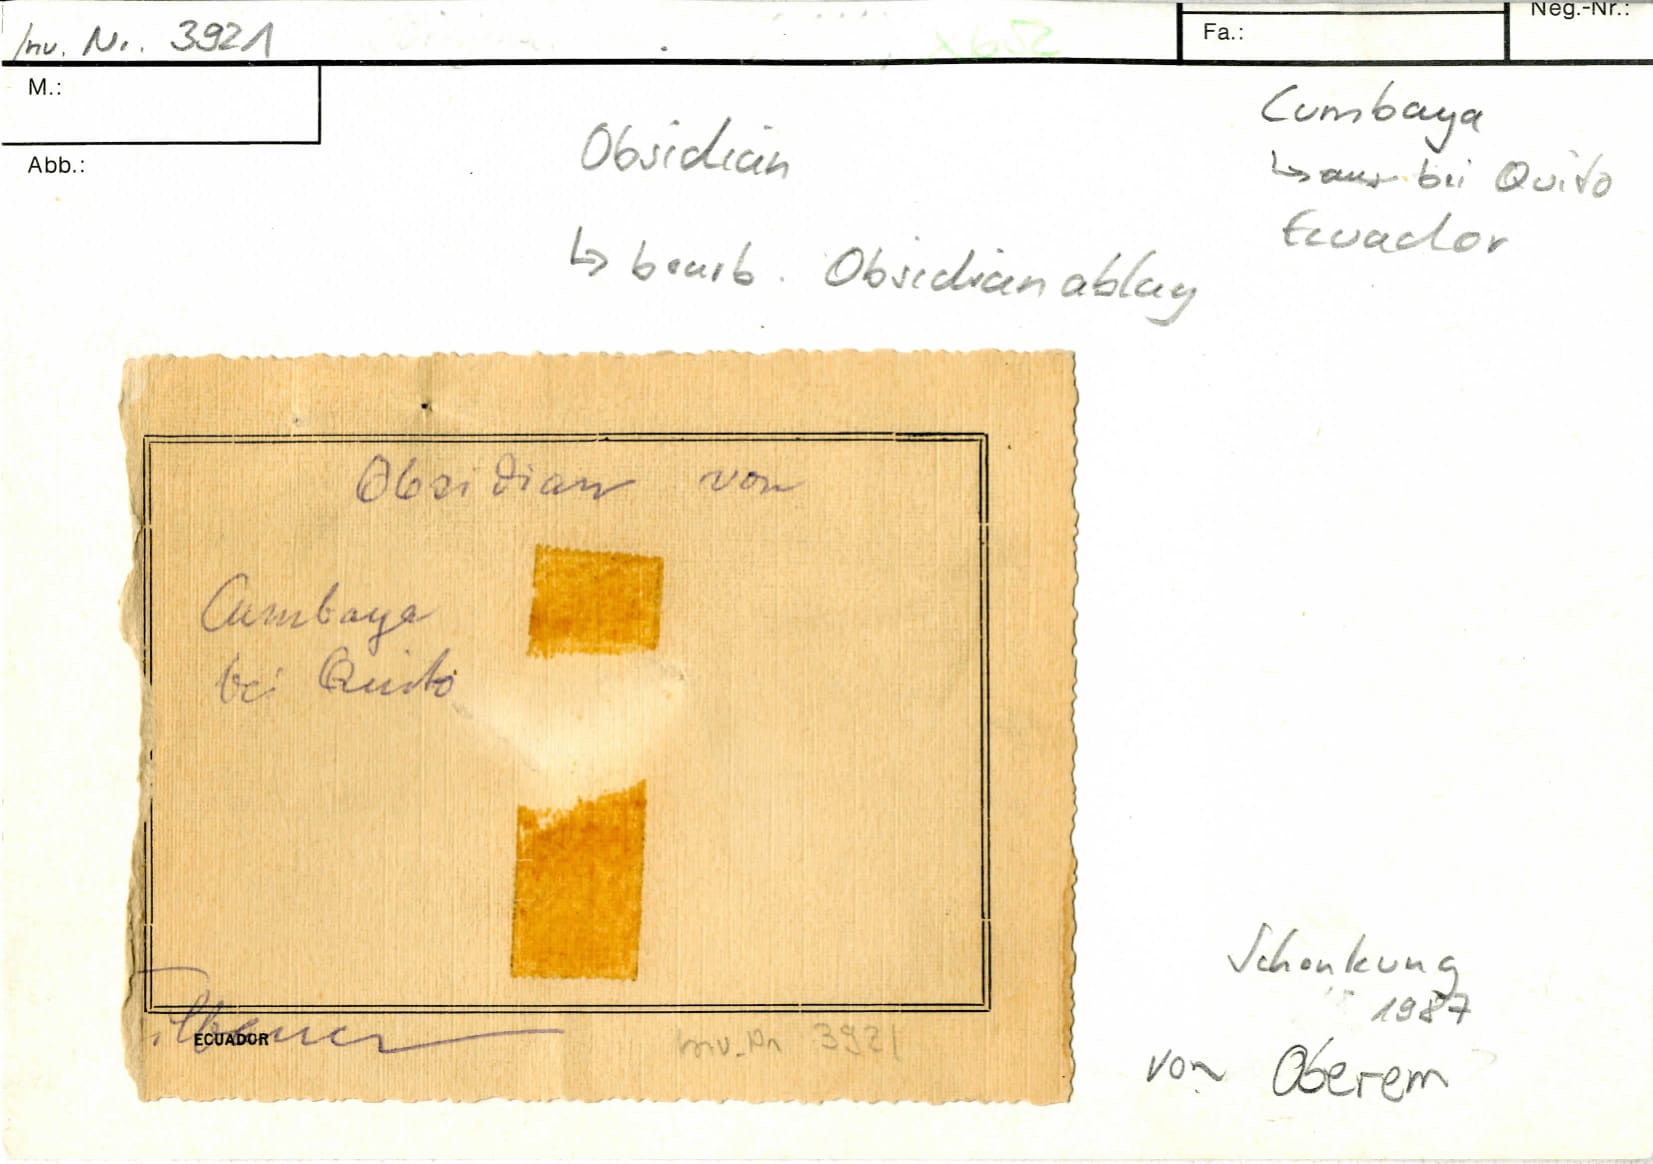 Inv. Nr. 3921
Fa.:
Neg.-Nr.:
M.:
Abb.:
Obsidian
↳ bearb. Obsidianablag
Cumbaya
↳ aus bei Quito
Ecuador
Obsidian von
Cumbaya
bei Quito
ECUADOR
Inv.-Nr 3921
Schenkung
1987
von Oberem